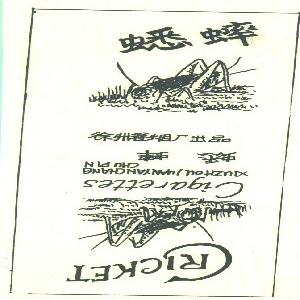 蟋蟀
徐州卷烟厂出品
蟋蟀
XUZHOU JUANYANCHANG
CHUPIN
Cigarettes
CRICKET